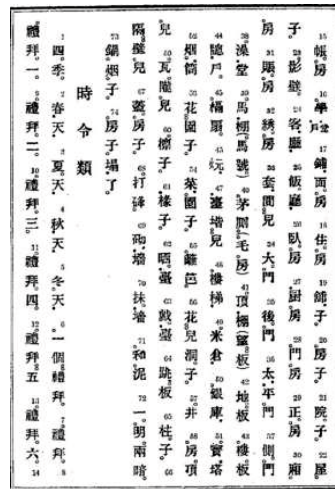 15帳房。16學房。17鋪面房。18住房。19鋪子。20房子。21院子。22屋
子。23影壁。24客廳。25飯廳。26臥房。27廚房。28門房。29正房。30廂
房。31賬房。32綉房。33套間兒。34大門。35後門。36太平門。37側門。
38澡堂。39馬棚(馬號)。40茅廁(毛房)。41頂棚(望板)。42地板。43樓板。
44牕戶。45槅扇。46炕。47臺堦兒。48樓梯。49米倉。50銀庫。51寶塔。
52烟筒。53花園子。54菜園子。55籬笆。56花兒洞子。57井。58房頂
兒。59瓦隴兒。60檁子。61椽子。62晒臺。63戲臺。64跳板。65柱子。66
隔壁兒。67蓋房子。68打磚。69砌墻。70抹墻。71和泥。72一明兩暗。
73鍋烟子。74房子塌了。
時令類
1四季。2春天。3夏天。4秋天。5冬天。6一個禮拜。7禮拜。8
禮拜一。9禮拜二。10禮拜三。11禮拜四。12禮拜五。13禮拜六。14